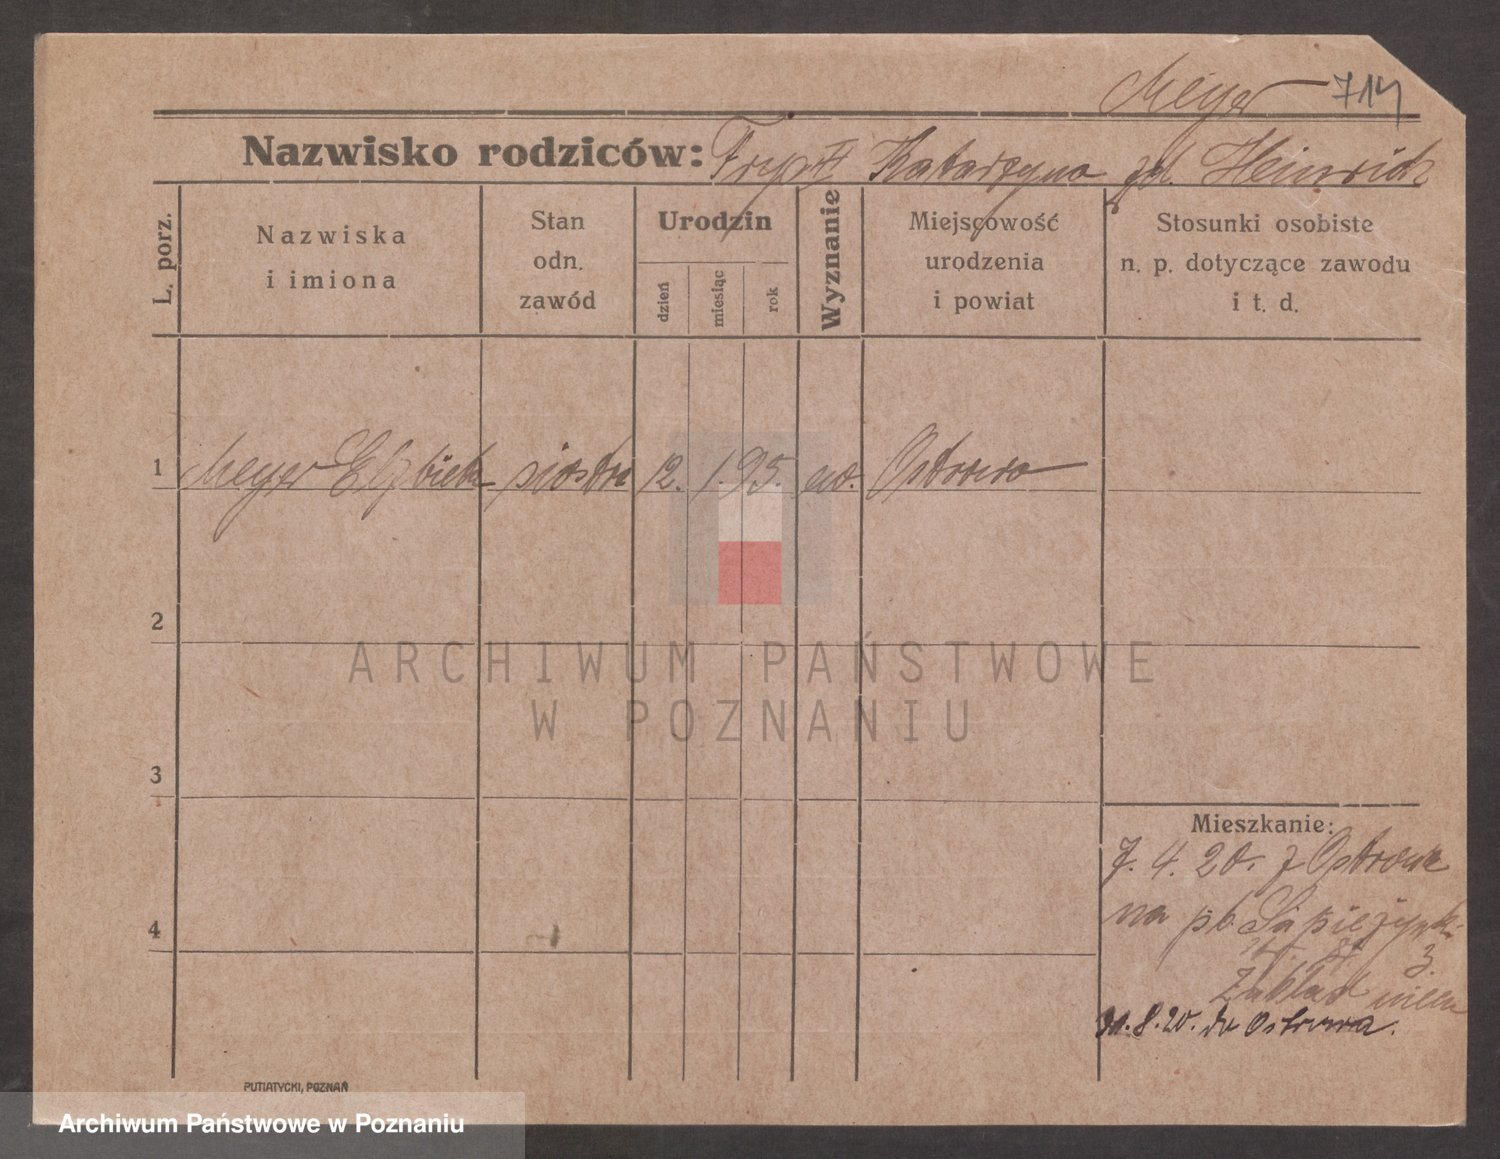 Meyer 714
Nazwisko rodziców: Katarzyna zd. Heinrich
L. porz.
Nazwiska
i imiona
Stan
odn.
zawód
Urodzin
dzień
miesiąc
rok
Wyznanie
Miejscowość
urodzenia
i powiat
Stosunki osobiste
n. p. dotyczące zawodu
i t. d.
1 Meyer Elzbieta siostra 12. 1. 95. ew. Ostrowo
2
ARCHIWUM PAŃSTWOWE
W POZNANIU
3
Mieszkanie:
7. 4. 20. z Ostrowa
na pl. Sapieżynski
3.
Zakład
4
31. 8. 20. do Ostrowa.
PUTIATYCKI, POZNAŃ
Archiwum Państwowe w Poznaniu